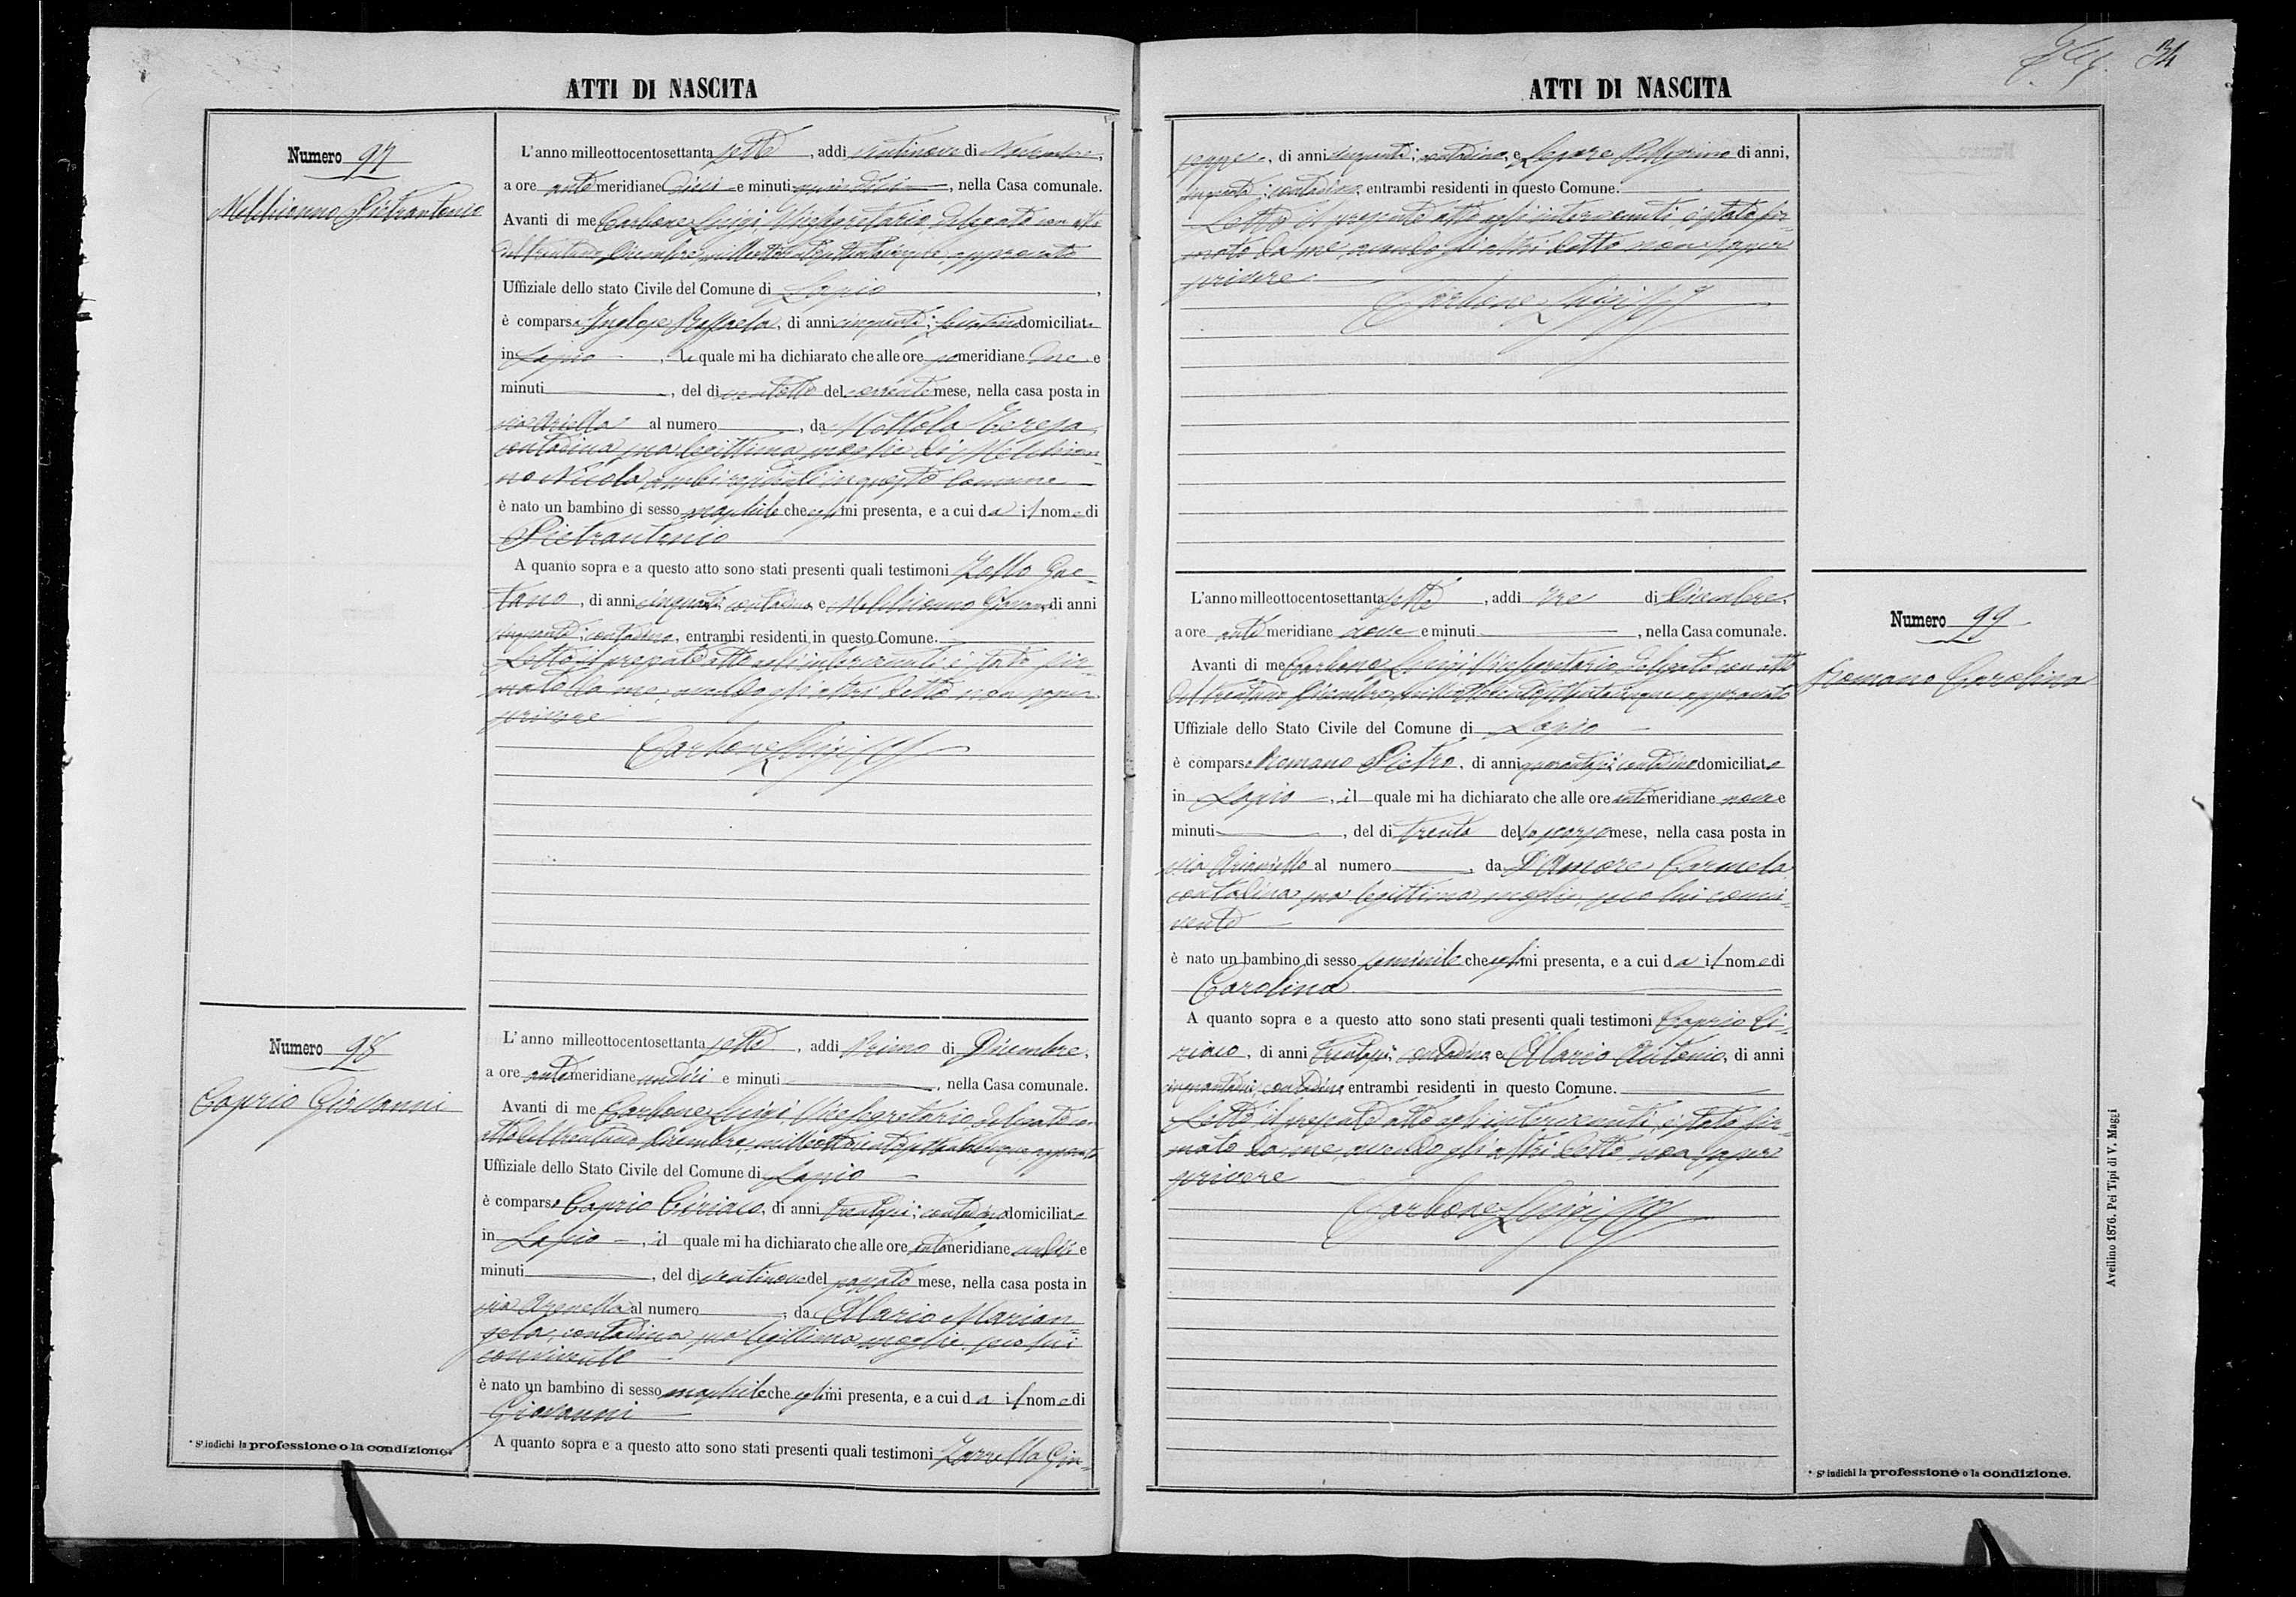 ATTI DI NASCITA
Numero 97
Melchionno Pietrantonio
L'anno milleottocentosettanta sette, addì ventinove di Novembre,
a ore anti meridiane dieci e minuti, nella Casa comunale.
Avanti di me Carbone Luigi Vicesegretario delegato con atto
del trentuno Dicembre milleottocentosettantacinque, approvato
Uffiziale dello stato Civile del Comune di Lapio,
è comparsa Inglese Raffaela, di anni cinquanta; domiciliata
in Lapio, la quale mi ha dichiarato che alle ore pomeridiane due e
minuti, del di ventotto del corrente mese, nella casa posta in
via al numero, da Mottola Teresa
contadina sua legittima moglie di Melchion-
no Nicola, ambi residenti in questo Comune
è nato un bambino di sesso maschile che mi presenta, e a cui da il nome di
Pietrantonio
A quanto sopra e a questo atto sono stati presenti quali testimoni Zollo Gae-
tano, di anni cinquanta, contadino, e Melchionno di anni
cinquanta; contadino, entrambi residenti in questo Comune.
Letto il presente atto agl'intervenuti, è stato fir-
mato da me, avendo gli altri detto non saper
scrivere
Carbone Luigi
Numero 98
Caprio Giovanni
L'anno milleottocentosettanta sette, addì primo di Dicembre,
a ore antimeridiane undici e minuti, nella Casa comunale.
Avanti di me Carbone Luigi Vicesegretario delegato con
atto del trentuno Dicembre milleottocentosettantacinque approvato
Uffiziale dello Stato Civile del Comune di Lapio
è comparso Caprio Ciriaco, di anni trentasei; contadino domiciliato
in Lapio, il quale mi ha dichiarato che alle ore antimeridiane undici e
minuti, del di ventinove del passato mese, nella casa posta in
via Arenella al numero, da Clario Marian-
gela, contadina sua legittima moglie, seco lui
convivente
è nato un bambino di sesso maschile che egli mi presenta, e a cui da il nome di
Giovanni
A quanto sopra e a questo atto sono stati presenti quali testimoni Zarrella Giu-
* S'indichi la professione o la condizione.
34
ATTI DI NASCITA
seppe, di anni cinquanta; contadino, e Lepore Pellegrino di anni,
cinquanta; contadino, entrambi residenti in questo Comune.
Letto il presente atto agl'intervenuti, è stato fir-
mato da me, avendo gli altri detto non saper
scrivere
Carbone Luigi
Numero 99
Romano Carolina
L'anno milleottocentosettanta sette, addì tre di Dicembre,
a ore antimeridiane nove e minuti, nella Casa comunale.
Avanti di me Carbone Luigi Vicesegretario delegato con atto
del trentuno Dicembre milleottocentosettantacinque approvato
Uffiziale dello Stato Civile del Comune di Lapio
è comparso Romano Pietro, di anni quarantasei contadino domiciliato
in Lapio, il quale mi ha dichiarato che alle ore antimeridiane nove e
minuti, del di trenta dello scorso mese, nella casa posta in
via al numero, da D'Amore Carmela
contadina sua legittima moglie, seco lui convi-
vente
è nato un bambino di sesso feminile che egli mi presenta, e a cui da il nome di
Carolina
A quanto sopra e a questo atto sono stati presenti quali testimoni Caprio Ci-
riaco, di anni trentasei; contadino, e Clario Antonio, di anni
contadino, entrambi residenti in questo Comune.
Letto il presente atto agl'intervenuti, è stato fir-
mato da me, avendo gli altri detto non saper
scrivere
Carbone Luigi
* S'indichi la professione o la condizione.
Avellino 1876. Pei Tipi di V. Maggi